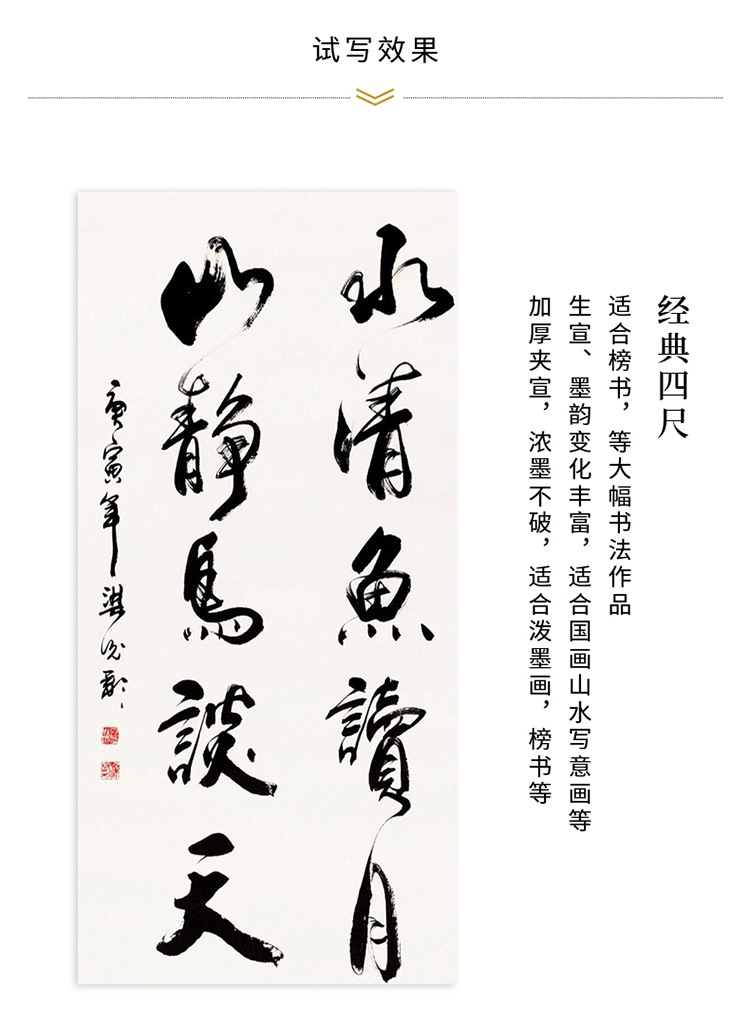 试写效果
经典四尺
适合榜书，等大幅书法作品
生宣、墨韵变化丰富，适合国画山水写意画等
加厚夹宣，浓墨不破，适合泼墨画，榜书等
水清魚讀月
山靜鳥談天
庚寅年